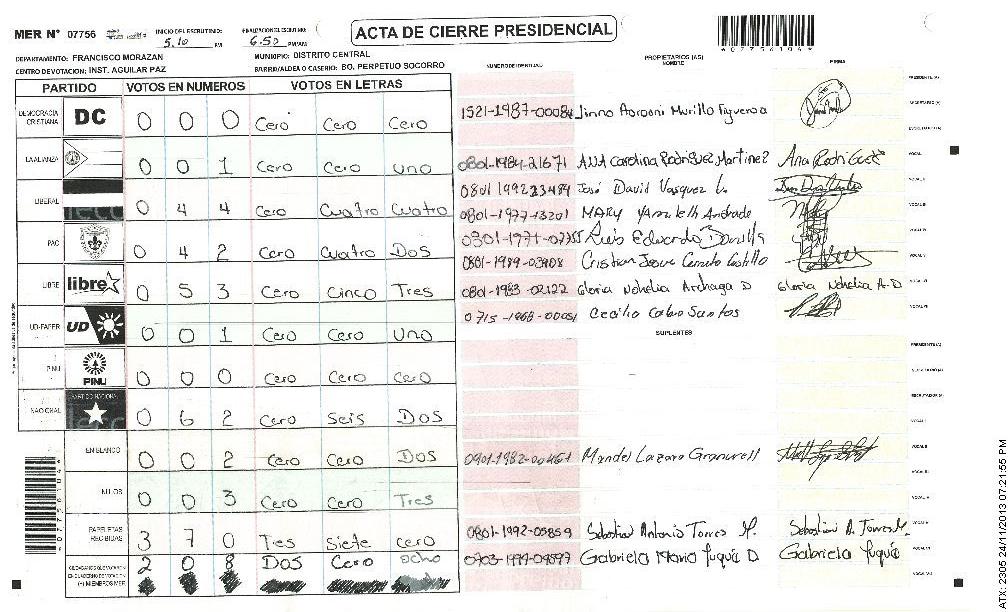 MER Nº 07756 INICIO DEL ESCRUTINIO: 5.10 PM FINALIZACION ESCRUTINIO: 6:50 PM/AM
ACTA DE CIERRE PRESIDENCIAL
DEPARTAMENTO: FRANCISCO MORAZAN MUNICIPIO: DISTRITO CENTRAL
CENTRO DE VOTACION: INST. AGUILAR PAZ BARRIO/ALDEA O CASERIO: BO. PERPETUO SOCORRO
PARTIDO VOTOS EN NUMEROS VOTOS EN LETRAS
DEMOCRACIA CRISTIANA DC 0 0 0 Cero Cero Cero
LA ALIANZA 0 0 1 Cero Cero uno
LIBERAL 0 4 4 Cero Cuatro Cuatro
PAC 0 4 2 Cero Cuatro Dos
LIBRE libre 0 5 3 Cero Cinco Tres
UD-FAPER UD 0 0 1 Cero Cero Uno
PINU PINU 0 0 0 Cero Cero Cero
NACIONAL PARTIDO NACIONAL 0 6 2 Cero Seis Dos
EN BLANCO 0 0 2 Cero Cero Dos
NULOS 0 0 3 Cero Cero Tres
PAPELETAS RECIBIDAS 3 7 0 Tres Siete cero
2 0 8 Dos Cero ocho
(+) MIEMBROS MER
NUMERO DE IDENTIDAD PROPIETARIOS (AS) NOMBRE FIRMA
1521-1987-00084 Murillo Figueroa
0801-1984-21671 ANA Carolina Rodriguez Martinez Ana Rodriguez
0801 1992 23484 José David Vasquez L.
0801-1977-13201 MARY Yamileth Andrade
0301-1971-07755 Luis Eduardo Bonilla
0801-1989-03908 Cristian Josue Cerrato Castillo
0801-1983-02122 Gloria Nohelia Archaga D Gloria Nohelia A.D
0715-1968-00051 Cecilio Calix Santos
SUPLENTES
0901-1982-00461 Mandel Lazaro
0801-1992-05859 Sebastian Antonio Torres M. Sebastian A. Torres M.
Gabriela Maria Yuquié D. Gabriela Yuquié
PRESIDENTE (A)
SECRETARIO (A)
ESCRUTADOR (A)
VOCAL I
VOCAL II
VOCAL III
VOCAL IV
VOCAL V
ATX: 2305 24/11/2013 07:21:55 PM